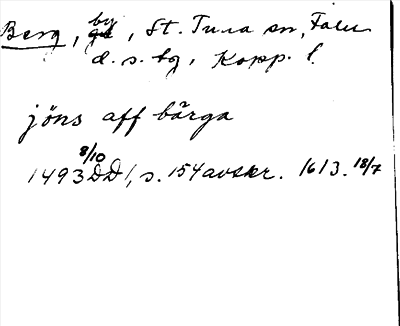 Berg, by, St. Tuna sn, Falu
d. s. tg, Kopp. l.
jöns aff bärga
1493 8/10 DD 1, s. 154 avskr. 1613. 18/7